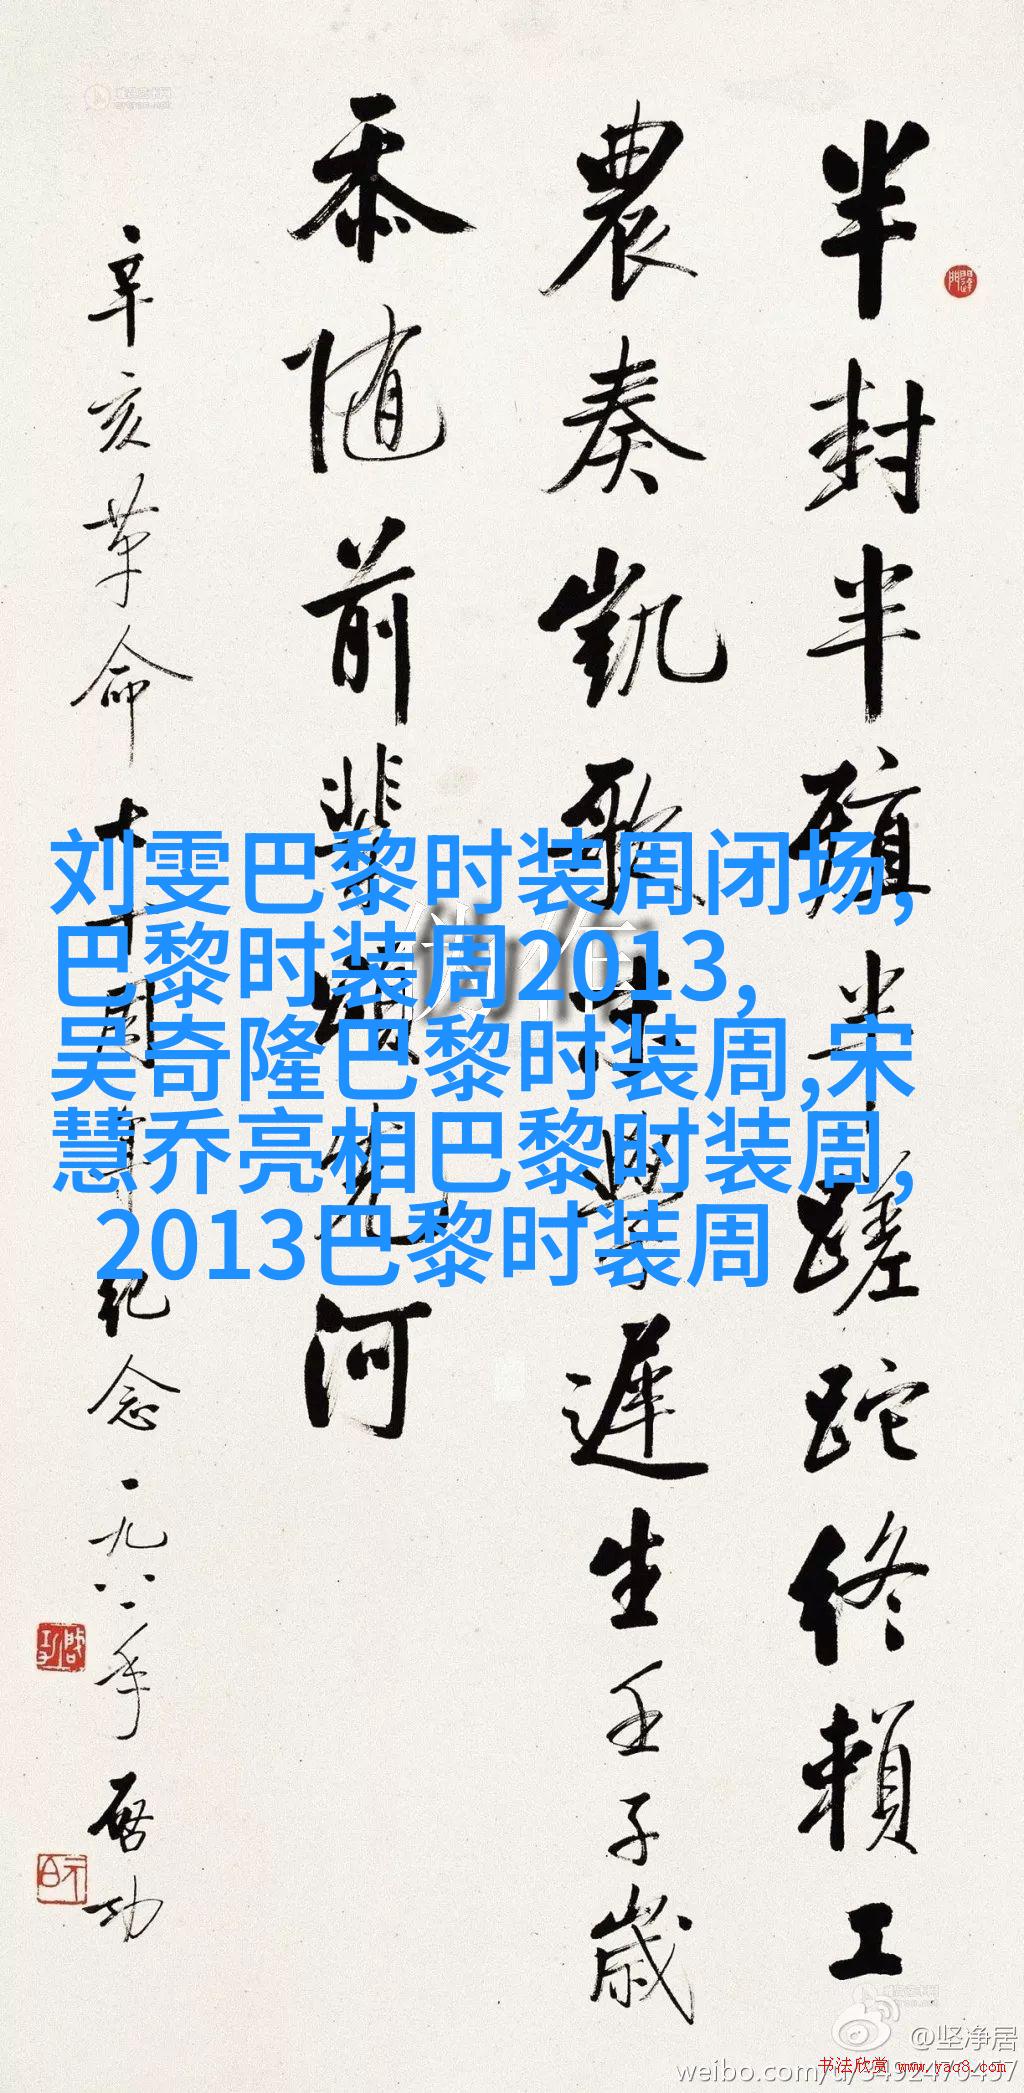 半封半殖半蹉跎终賴工
農奏凱歌學遲生壬子歲
忝随前輩頌先河
辛亥革命七十周年纪念一九八一年 启功
刘雯巴黎时装周闭场,
巴黎时装周2013,
吴奇隆巴黎时装周,宋
慧乔亮相巴黎时装周,
2013巴黎时装周
@坚净居
书法欣赏 www.yac8.com